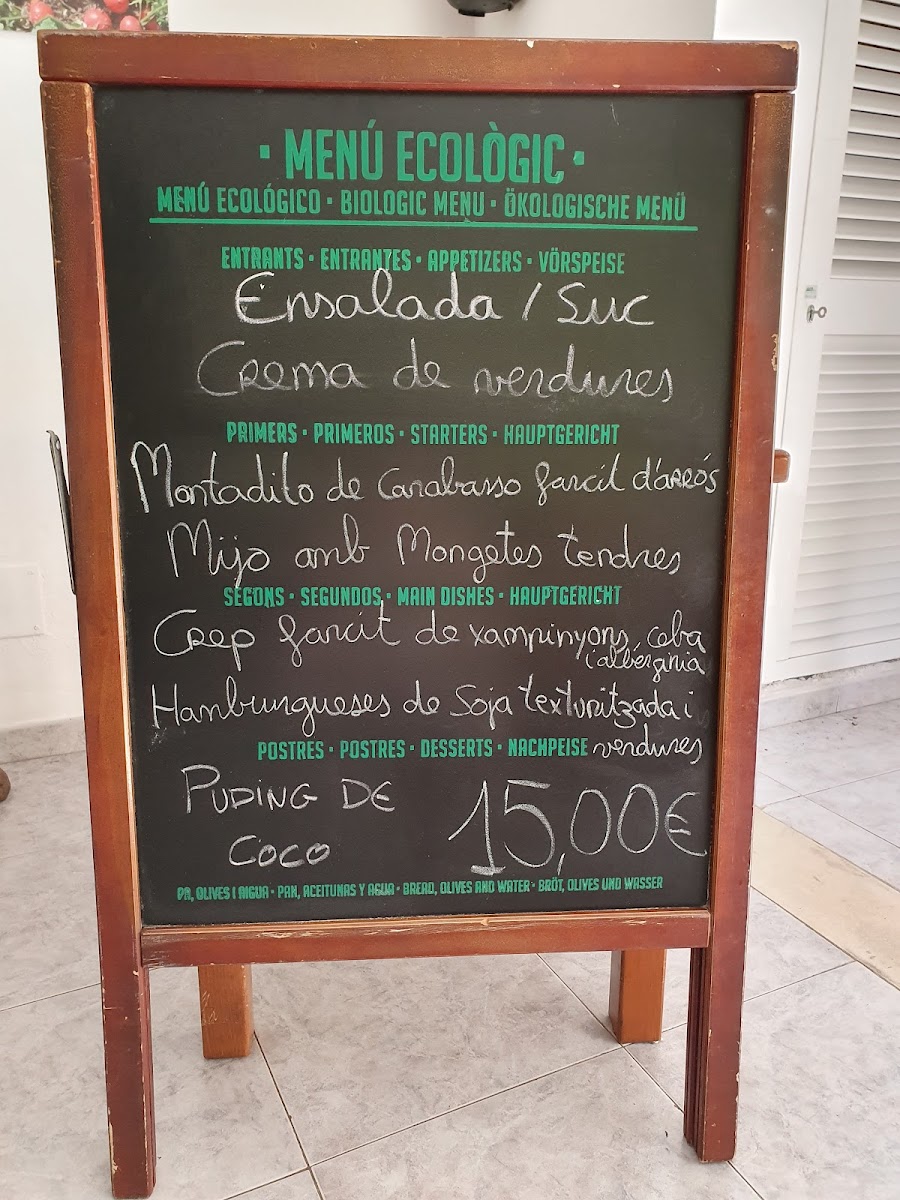 · MENÚ ECOLÒGIC ·
MENÚ ECOLÓGICO · BIOLOGIC MENU · ÖKOLOGISCHE MENÜ
ENTRANTS · ENTRANTES · APPETIZERS · VÖRSPEISE
Ensalada / Suc
Crema de verdures
PRIMERS · PRIMEROS · STARTERS · HAUPTGERICHT
Montadito de Carabasso farcit d'arròs
Mijo amb Mongetes tendres
SEGONS · SEGUNDOS · MAIN DISHES · HAUPTGERICHT
Crep farcit de xampinyons, ceba
i albergínia
Hamburgueses de Soja texturitzada i
verdures
POSTRES · POSTRES · DESSERTS · NACHPEISE
PUDING DE
COCO
15,00€
PA, OLIVES I AIGUA · PAN, ACEITUNAS Y AGUA · BREAD, OLIVES AND WATER · BRÖT, OLIVES UND WASSER